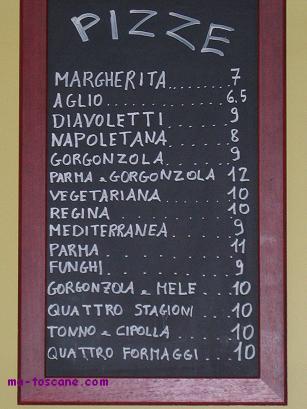 PIZZE
MARGHERITA........7
AGLIO................6.5
DIAVOLETTI.........9
NAPOLETANA........8
GORGONZOLA........9
PARMA e GORGONZOLA 12
VEGETARIANA........10
REGINA..............10
MEDITERRANEA.......9
PARMA...............11
FUNGHI..............9
GORGONZOLA e MELE...10
QUATTRO STAGIONI....10
TONNO e CIPOLLA.....10
QUATTRO FORMAGGI...10
ma-toscane.com